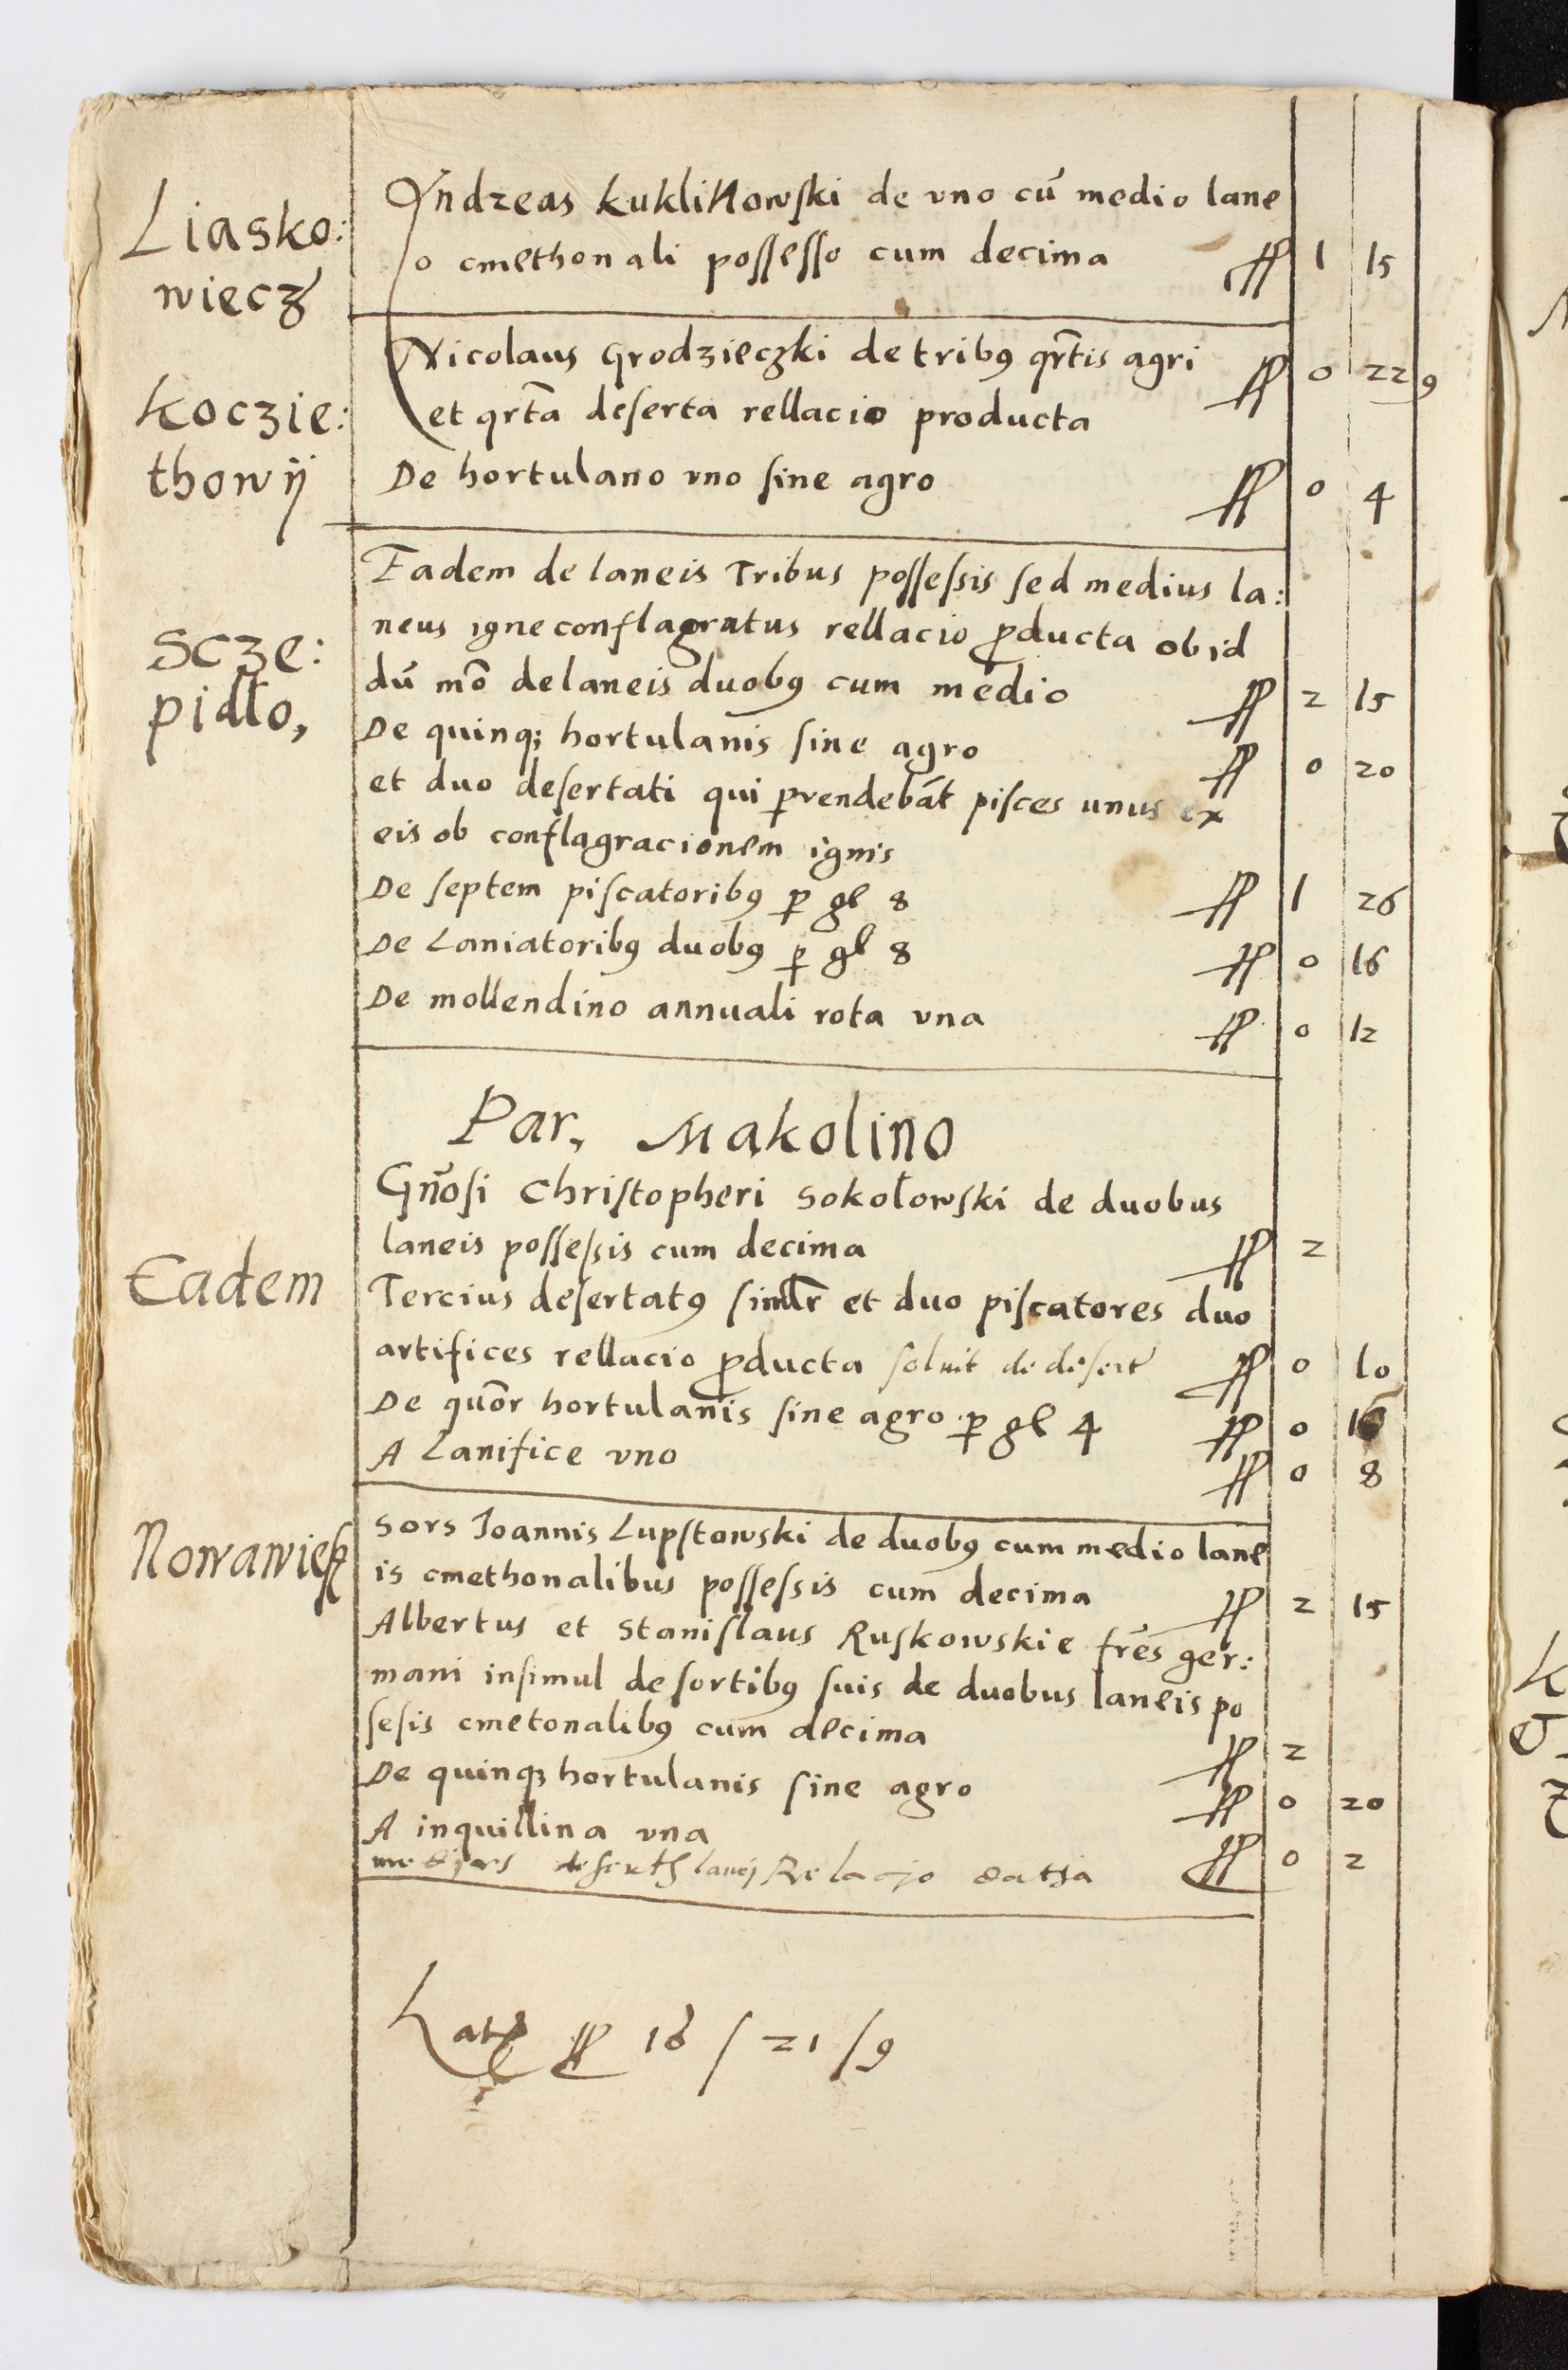 Liasko:
wiecz
Andreas Kuklinowski de vno cū medio lane
o cmethonali possesso cum decima ff 1 15
Koczie:
thowÿ
Nicolaus Grodzieczki de tribꝯ qrtis agri ff 0 22 9
et qrta deserta rellacio producta
De hortulano vno sine agro ff 0 4
Scze:
pidło,
Eadem de laneis Tribus possessis sed medius la:
neus igne conflagratus rellacio ꝓducta ob id
dū mō de laneis duobꝯ cum medio ff 2 15
De quinqꝫ hortulanis sine agro ff 0 20
et duo desertati qui prendebāt pisces unus ex
eis ob conflagracionem ignis
De septem piscatoribꝯ ꝑ gl 8 ff 1 26
De Laniatoribꝯ duobꝯ ꝑ gl 8 ff 0 16
De mollendino annuali rota vna ff 0 12
Par, Makolino
Eadem
Gn̄osi Christopheri Sokołowski de duobus
laneis possessis cum decima ff 2
Tercius desertatꝯ similr et duo piscatores duo
artifices rellacio ꝓducta soluit de desert ff 0 10
De quor hortulanis sine agro ꝑ gl 4 ff 0 16
A Lanifice vno ff 0 8
Nowawieś
Sors Joannis Lupstowski de duobꝯ cum medio lane
is cmethonalibus possessis cum decima ff 2 15
Albertus et Stanislaus Ruskowskie frēs ger:
mani insimul de sortibꝯ suis de duobus laneis po
sesis cmetonalibꝯ cum decima ff 2
De quinqꝫ hortulanis sine agro ff 0 20
A inquillina vna ff 0 2
lanej Relacjo
Lat ff 16 / 21 / 9